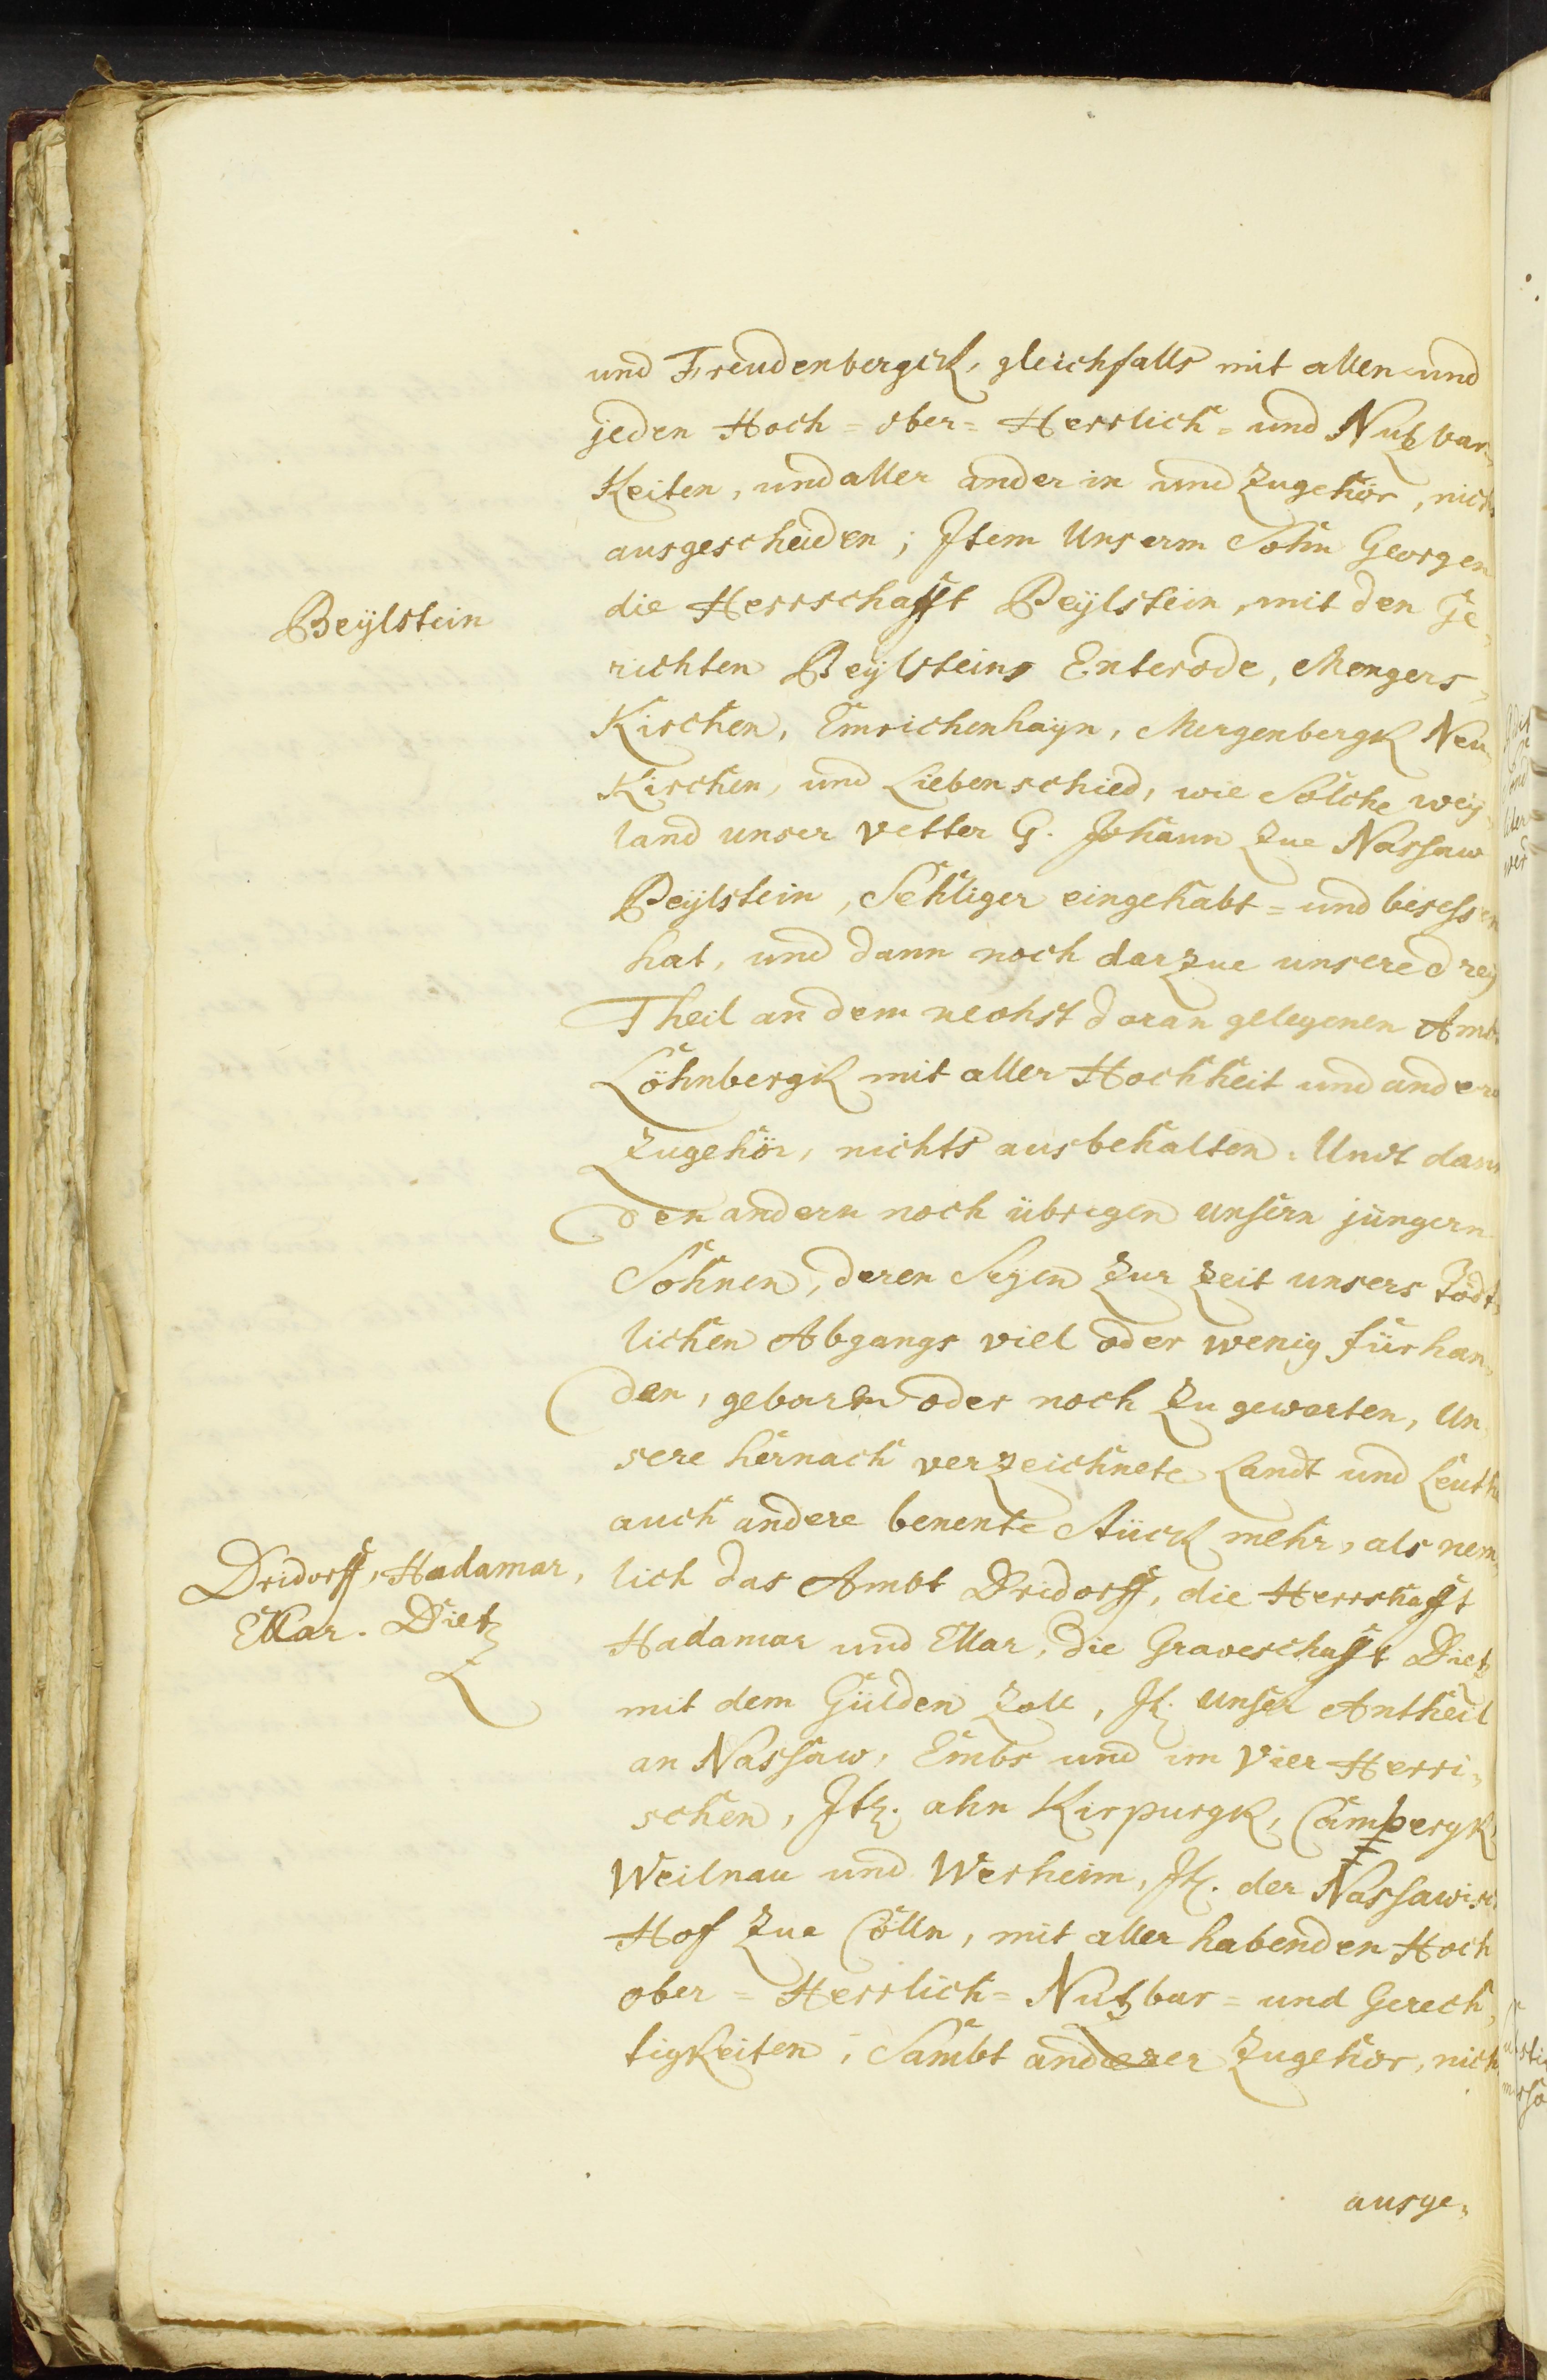 und Freudenbergck, gleichfalls mit allen und
jeden Hoch= ober= Herrlich= und Nutzbar„
Keiten, und aller ander in und Zugehör, nicht
ausgescheiden; Item Unserm Sohn Georgen
Beÿlstein
die Herrschafft Beÿlstein, mit den Ge„
richten Beÿlstein, Enterode, Mengers„
Kirchen, Emrichenhayn, Mergenbergk Neu„
Kirchen, und Liebenschied, wie Solche weÿ„
land unser vetter G. Johann Zue Nassaw
Beÿlstein, Sehliger eingehabt= und besessen
hat, und dann noch darzue unsere dreÿ
Theil an dem nechst daran gelegenen Ambt
Löhnbergk mit aller Hochheit und andern
Zugehör, nichts ausbehalten. Undt dann
den andern noch übrigen unsern jüngern
Söhnen, deren Seyen Zur Zeit unsers Tödt„
lichen Abgangs viel oder wenig fürhan„
den, geboren oder noch Zu gewarten, Un„
sere hernach verzeichnete Landt und Leuthe
auch andere benente Stück mehr, als nem„
Dridorff, Hadamar,
Ellar. Dietz
lich das Ambt Dridorff, die Herrshafft
Hadamar und Ellar, die Graveschafft Dietz
mit dem Gülden Zoll, It. unser Antheil
an Nassaw, Embs und im Vier Herri„
schen, Itz. ahn Kirpurgk, Campergk
Weilnau und Werheim, It. der Nassawisch
Hof Zue Cölln, mit aller habenden Hoch
ober= Herrlich= Nutzbar= und Gerech„
tigKeiten, Sambt anderer Zugehör, nicht
ausge„